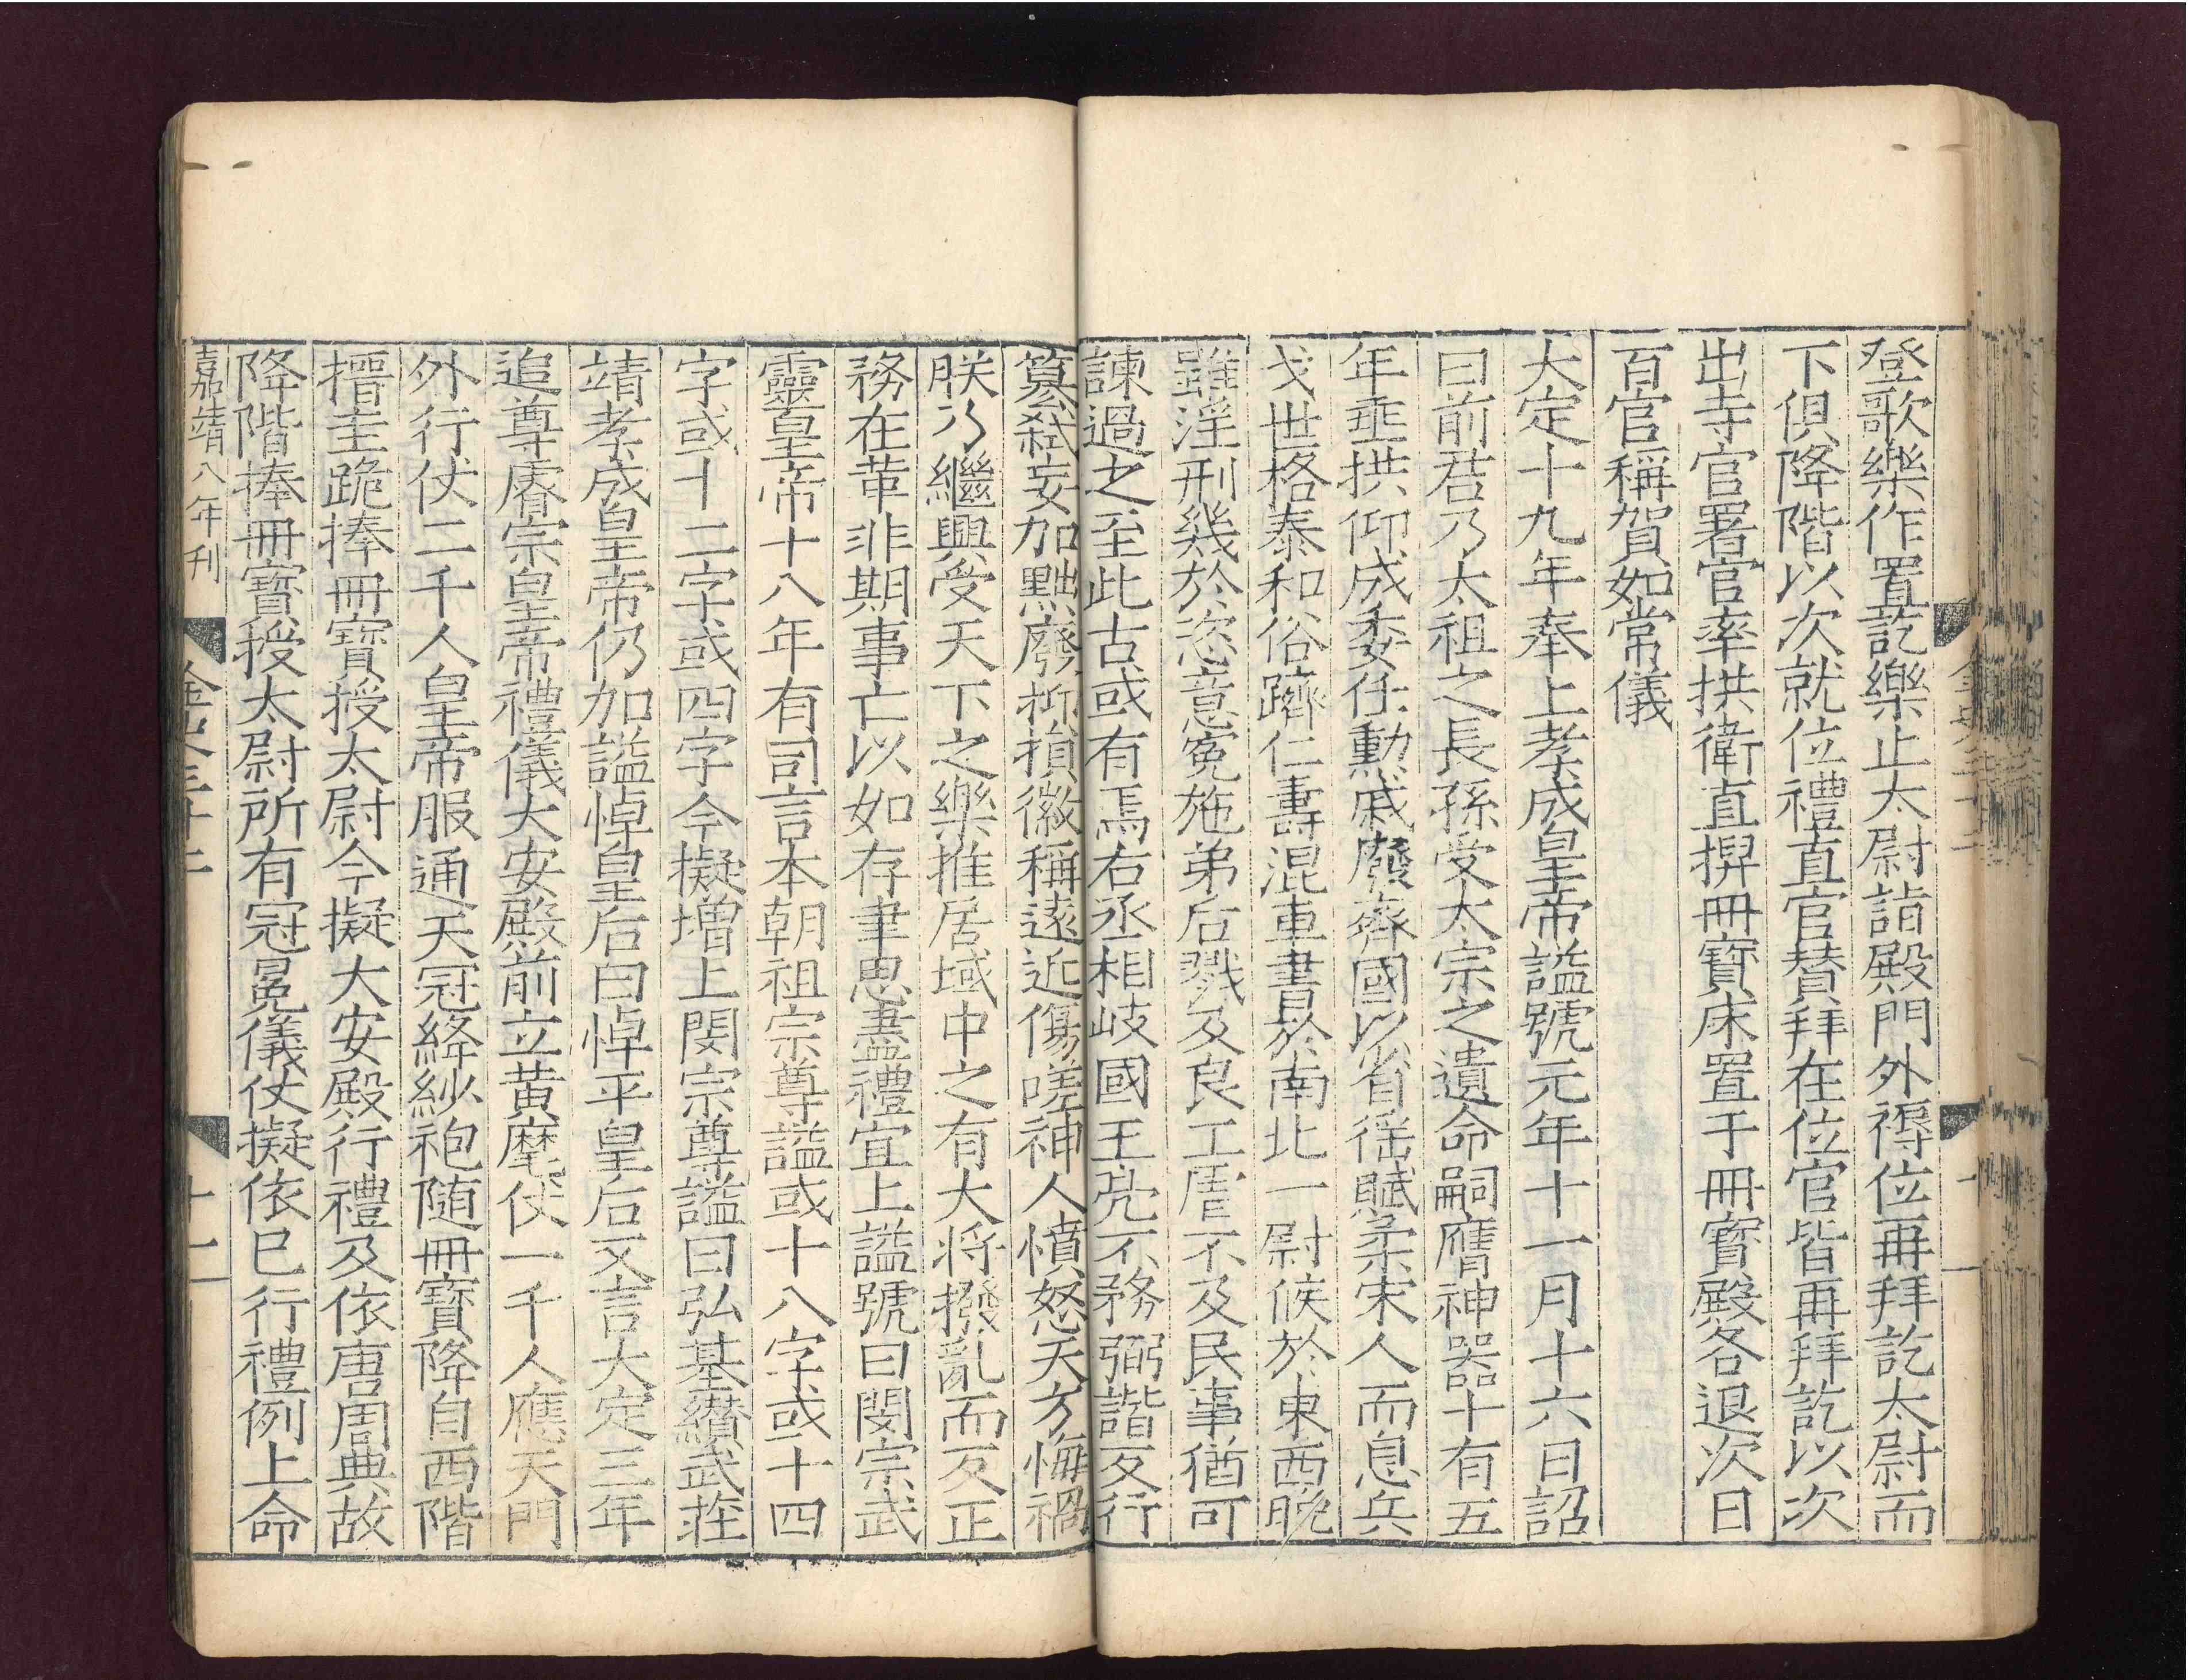 登歌樂作置訖樂止太尉詣殿門外褥位再拜訖太尉而
下俱降階以次就位禮直官賛拜在位官皆再拜訖以次
出寺官署官率拱衛直捍冊寶床置于冊寶殿各退次日
百官稱賀如常儀
大定十九年奉上孝成皇帝謚號元年十一月十六日詔
曰前君乃太祖之長孫受太宗之遺命嗣膺神器十有五
年垂拱仰成委任勳戚廢齊國以省徭賦柔宋人而息兵
戈世格泰和俗躋仁壽混車書於南北一尉候於東西晚
雖淫刑幾於恣意寃施弟后戮及良工虐不及民事猶可
諫過之至此古或有焉右丞相岐國王亮不務弼諧反行
簒弑妄加黜廢抑損徽稱遠近傷嗟神人憤怒天方悔禍
朕乃繼興受天下之樂推居域中之有大将撥亂而反正
務在革非期事亡以如存聿思盡禮宜上謚號曰閔宗武
靈皇帝十八年有司言本朝祖宗尊謚或十八字或十四
字或十二字或四字今擬增上閔宗尊謚曰弘基纘武莊
靖孝成皇帝仍加謚悼皇后曰悼平皇后又言大定三年
追尊睿宗皇帝禮儀大安殿前立黄麾仗一千人應天門
外行仗二千人皇帝服通天冠絳紗袍随冊寶降自西階
搢圭跪捧冊寶授太尉今擬大安殿行禮及依唐周典故
降階捧冊寶授太尉所有冠冕儀仗擬依已行禮例上命
嘉靖八年刊 金史三十二 十一